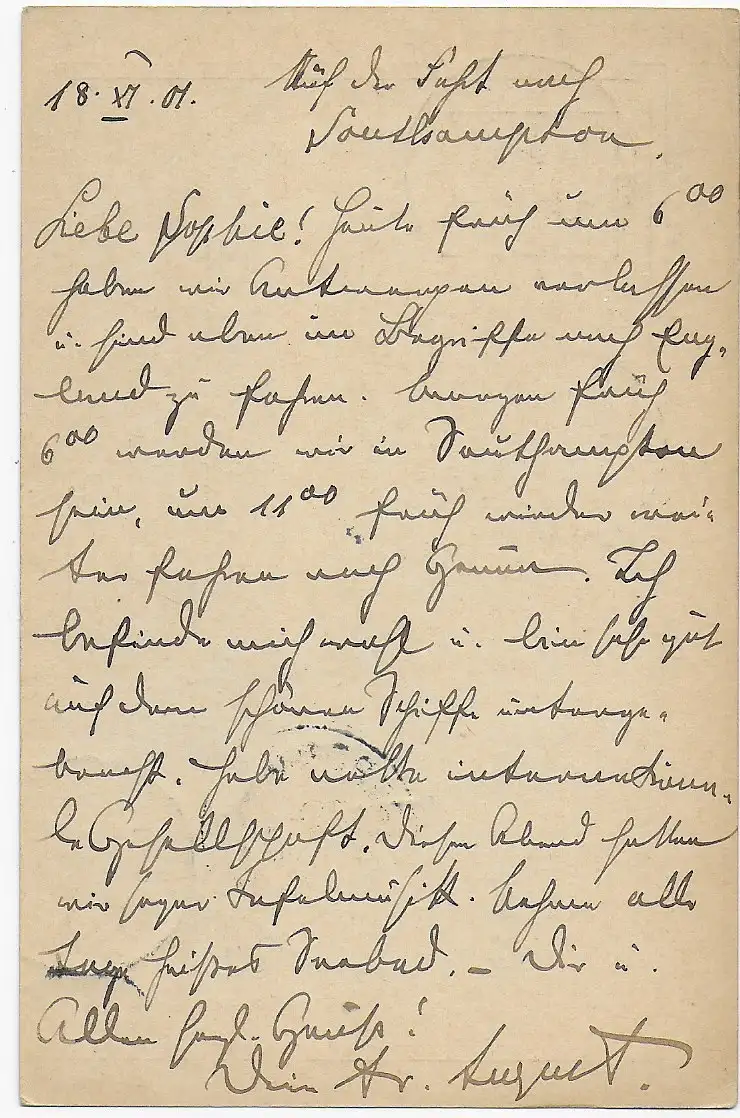 18. XI. 01. Auf der Fahrt nach
Southampton.
Liebe Sophie! Heute früh um 6 00
haben wir Antwerpen verlassen
u. sind eben im Begriffe nach Eng-
land zu fahren. Morgen früh
6 00 werden wir in Southampton
sein, um 11 00 früh wieder wei-
ter fahren nach Genua. Ich
befinde mich wohl u. bin sehr gut
auf dem schönen Schiffe unterge-
bracht. Habe nette internationa-
le Gesellschaft. Diesen Abend hatten
wir sogar Tafelmusik. Nehme alle
Tage heißes Seebad. – Dir u.
Allen herzl. Gruß!
Dein Br. August.